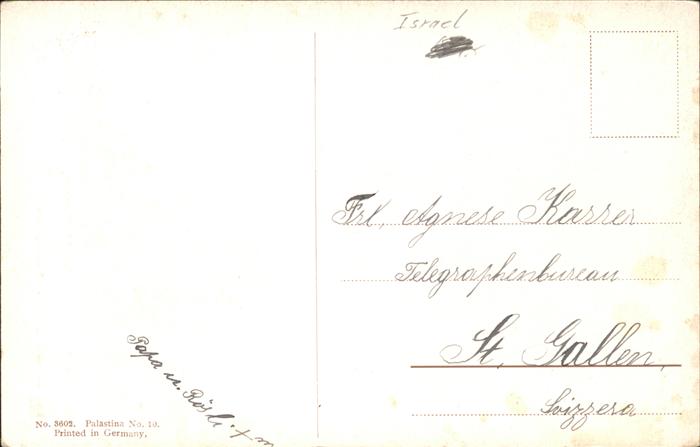 Israel
Frl. Agnese Karrer
Telegraphenbureau
St. Gallen.
Svizzera
Papa u. Rösli
No. 3602. Palastina No. 10.
Printed in Germany.